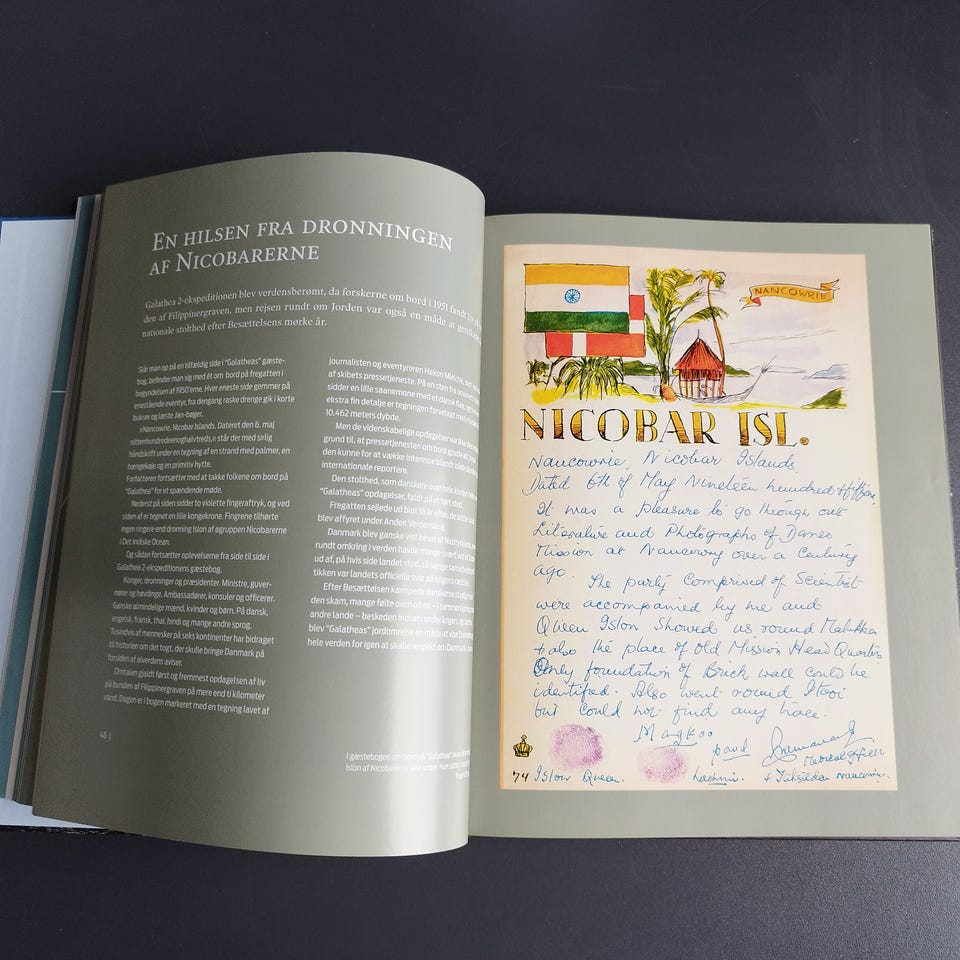 EN HILSEN FRA DRONNINGEN
AF NICOBARERNE
Galathea 2-ekspeditionen blev verdensberømt, da forskerne om bord i 1951 fandt liv
den af Filippinergraven, men rejsen rundt om Jorden var også en måde at
nationale stolthed efter Besættelsens mørke år.
Slår man op på en tilfældig side i "Galatheas" gæste-
bog, befinder man sig med ét om bord på fregatten i
begyndelsen af 1950'erne. Hver eneste side gemmer på
enestående eventyr, fra dengang raske drenge gik i korte
bukser og læste Jan-bøger.
»Nancowrie, Nicobar Islands. Dateret den 6. maj
nittenhundredeenoghalvtreds,« står der med sirlig
håndskrift under en tegning af en strand med palmer, en
hængekøje og en primitiv hytte.
Forfatteren fortsætter med at takke folkene om bord på
"Galathea" for et spændende møde.
Nederst på siden sidder to violette fingeraftryk, og ved
siden af er tegnet en lille kongekrone. Fingrene tilhørte
ingen ringere end dronning Islon af øgruppen Nicobarerne
i Det Indiske Ocean.
Og sådan fortsætter oplevelserne fra side til side i
Galathea 2-ekspeditionens gæstebog.
Konger, dronninger og præsidenter. Ministre, guver-
nører og høvdinge. Ambassadører, konsuler og officerer.
Ganske almindelige mænd, kvinder og børn. På dansk,
engelsk, fransk, thai, hindi og mange andre sprog.
Tusindvis af mennesker på seks kontinenter har bidraget
til historien om det togt, der skulle bringe Danmark på
forsiden af alverdens aviser.
Omtalen gjaldt først og fremmest opdagelsen af liv
på bunden af Filippinergraven på mere end ti kilometer
vand. Dagen er i bogen markeret med en tegning lavet af
46 |
journalisten og eventyreren Hakon Mielche, som
af skibets pressetjeneste. På en sten
sidder en lille søanemone med et dansk flag, og
ekstra fin detalje er tegningen farvelagt med
10.462 meters dybde.
Men de videnskabelige opdagelser var ikke den
grund til, at pressetjenesten om bord
den kunne for at vække interesse blandt både
internationale reportere.
Den stolthed, som danskere over hele kloden
"Galatheas" opdagelser, faldt på et tørt sted.
Fregatten sejlede ud blot få år efter, de sidste
blev affyret under Anden Verdenskrig.
Danmark blev ganske vist besat af Nazityskland,
rundt omkring i verden havde mange svært ved at
ud af, på hvis side landet stod, så længe samarbejdspoli-
tikken var landets officielle svar på krigens rædsler.
Efter Besættelsen kæmpede danskerne stadig med
den skam, mange følte oven på en – i sammenligning
andre lande – beskeden indsats under krigen, og derfor
blev "Galatheas" jordomrejse en måde at vise
hele verden for igen at skabe respekt om Danmark
I gæstebogen om bord på "Galathea"
Islon af Nicobarerne
NANCOWRIE
NICOBAR ISL.
Nancowrie, Nicobar Islands
Dated 6th of May Nineteen hundred fifty one.
It was a pleasure to go through out
Literature and Photographs of Danes
Mission at Nancowry over a Century
ago. The party Comprised of Scientist
were accompanied by me and
Queen Islon Showed us round
+ also the place of old Mission Head Quarters
Only foundation of Brick wall could be
identified. Also went round Itooi
but could not find any trace.
74 Islon Queen. Lachmi. Medical officer
+ Tahsildar Nancowrie